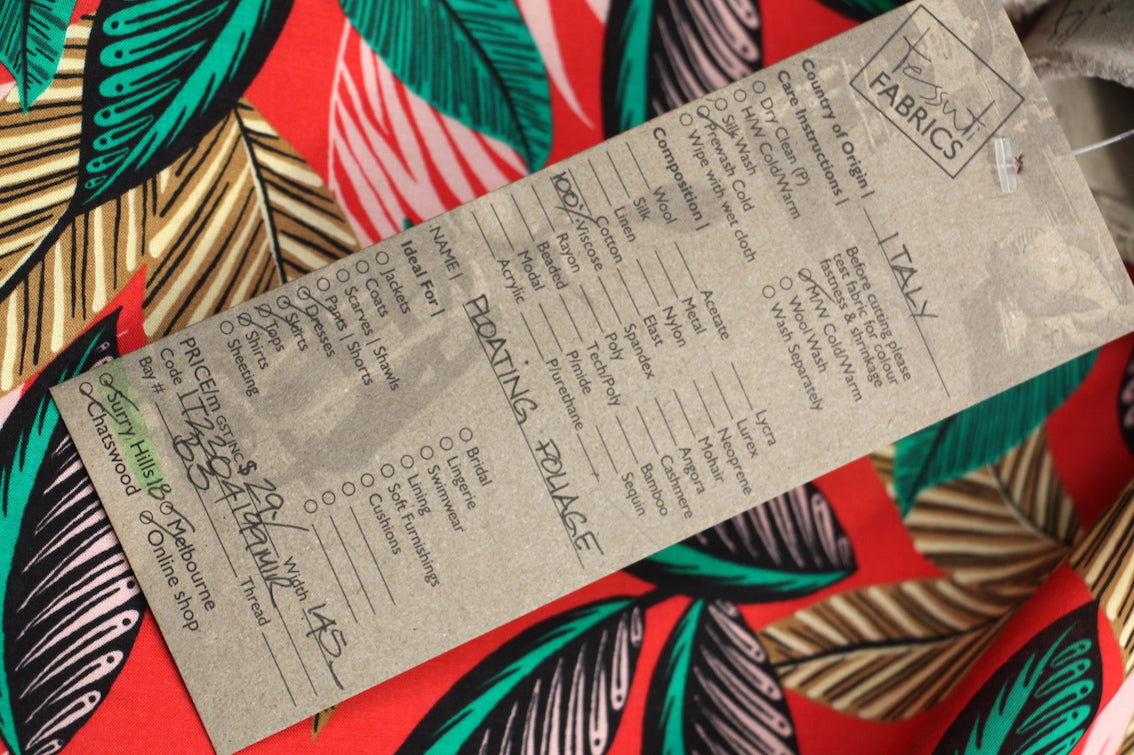 tessuti
FABRICS
Country of Origin | ITALY
Care Instructions |
Before cutting please
test fabric for colour
fastness & shrinkage
Dry Clean (P)
H/W Cold/Warm
Silk Wash
Prewash Cold
Wipe with wet cloth
M/W Cold/Warm
Wool Wash
Wash Separately
Composition |
Wool Acetate Lycra
Silk Metal Lurex
Linen Nylon Neoprene
100% Cotton Elast Mohair
Viscose Spandex Angora
Rayon Poly Cashmere
Beaded Tech/Poly Bamboo
Modal P/mide Sequin
Acrylic P/urethane
NAME | FLOATING FOLIAGE
Ideal For |
Jackets Bridal
Coats Lingerie
Scarves | Shawls Swimwear
Pants | Shorts Lining
Dresses Soft Furnishings
Skirts Cushions
Tops
Shirts
Sheeting
PRICE/m GST INC $ 29/ Width 145
Code
Bay # 03 Thread
Surry Hills Melbourne
Chatswood Online shop